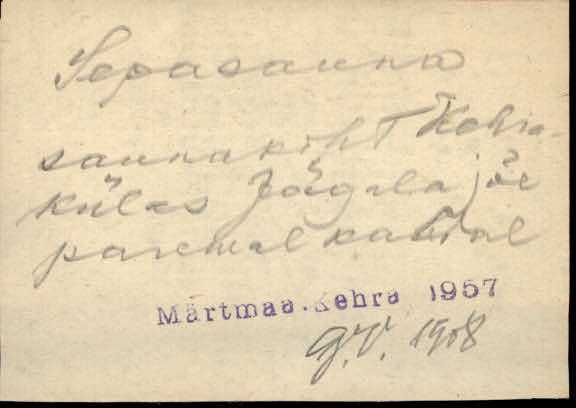 Sepasauna
saunakoht Kehra-
külas Jägala jõe
paremal kaldal
Märtmaa.Kehra 1957
G.V. 1908